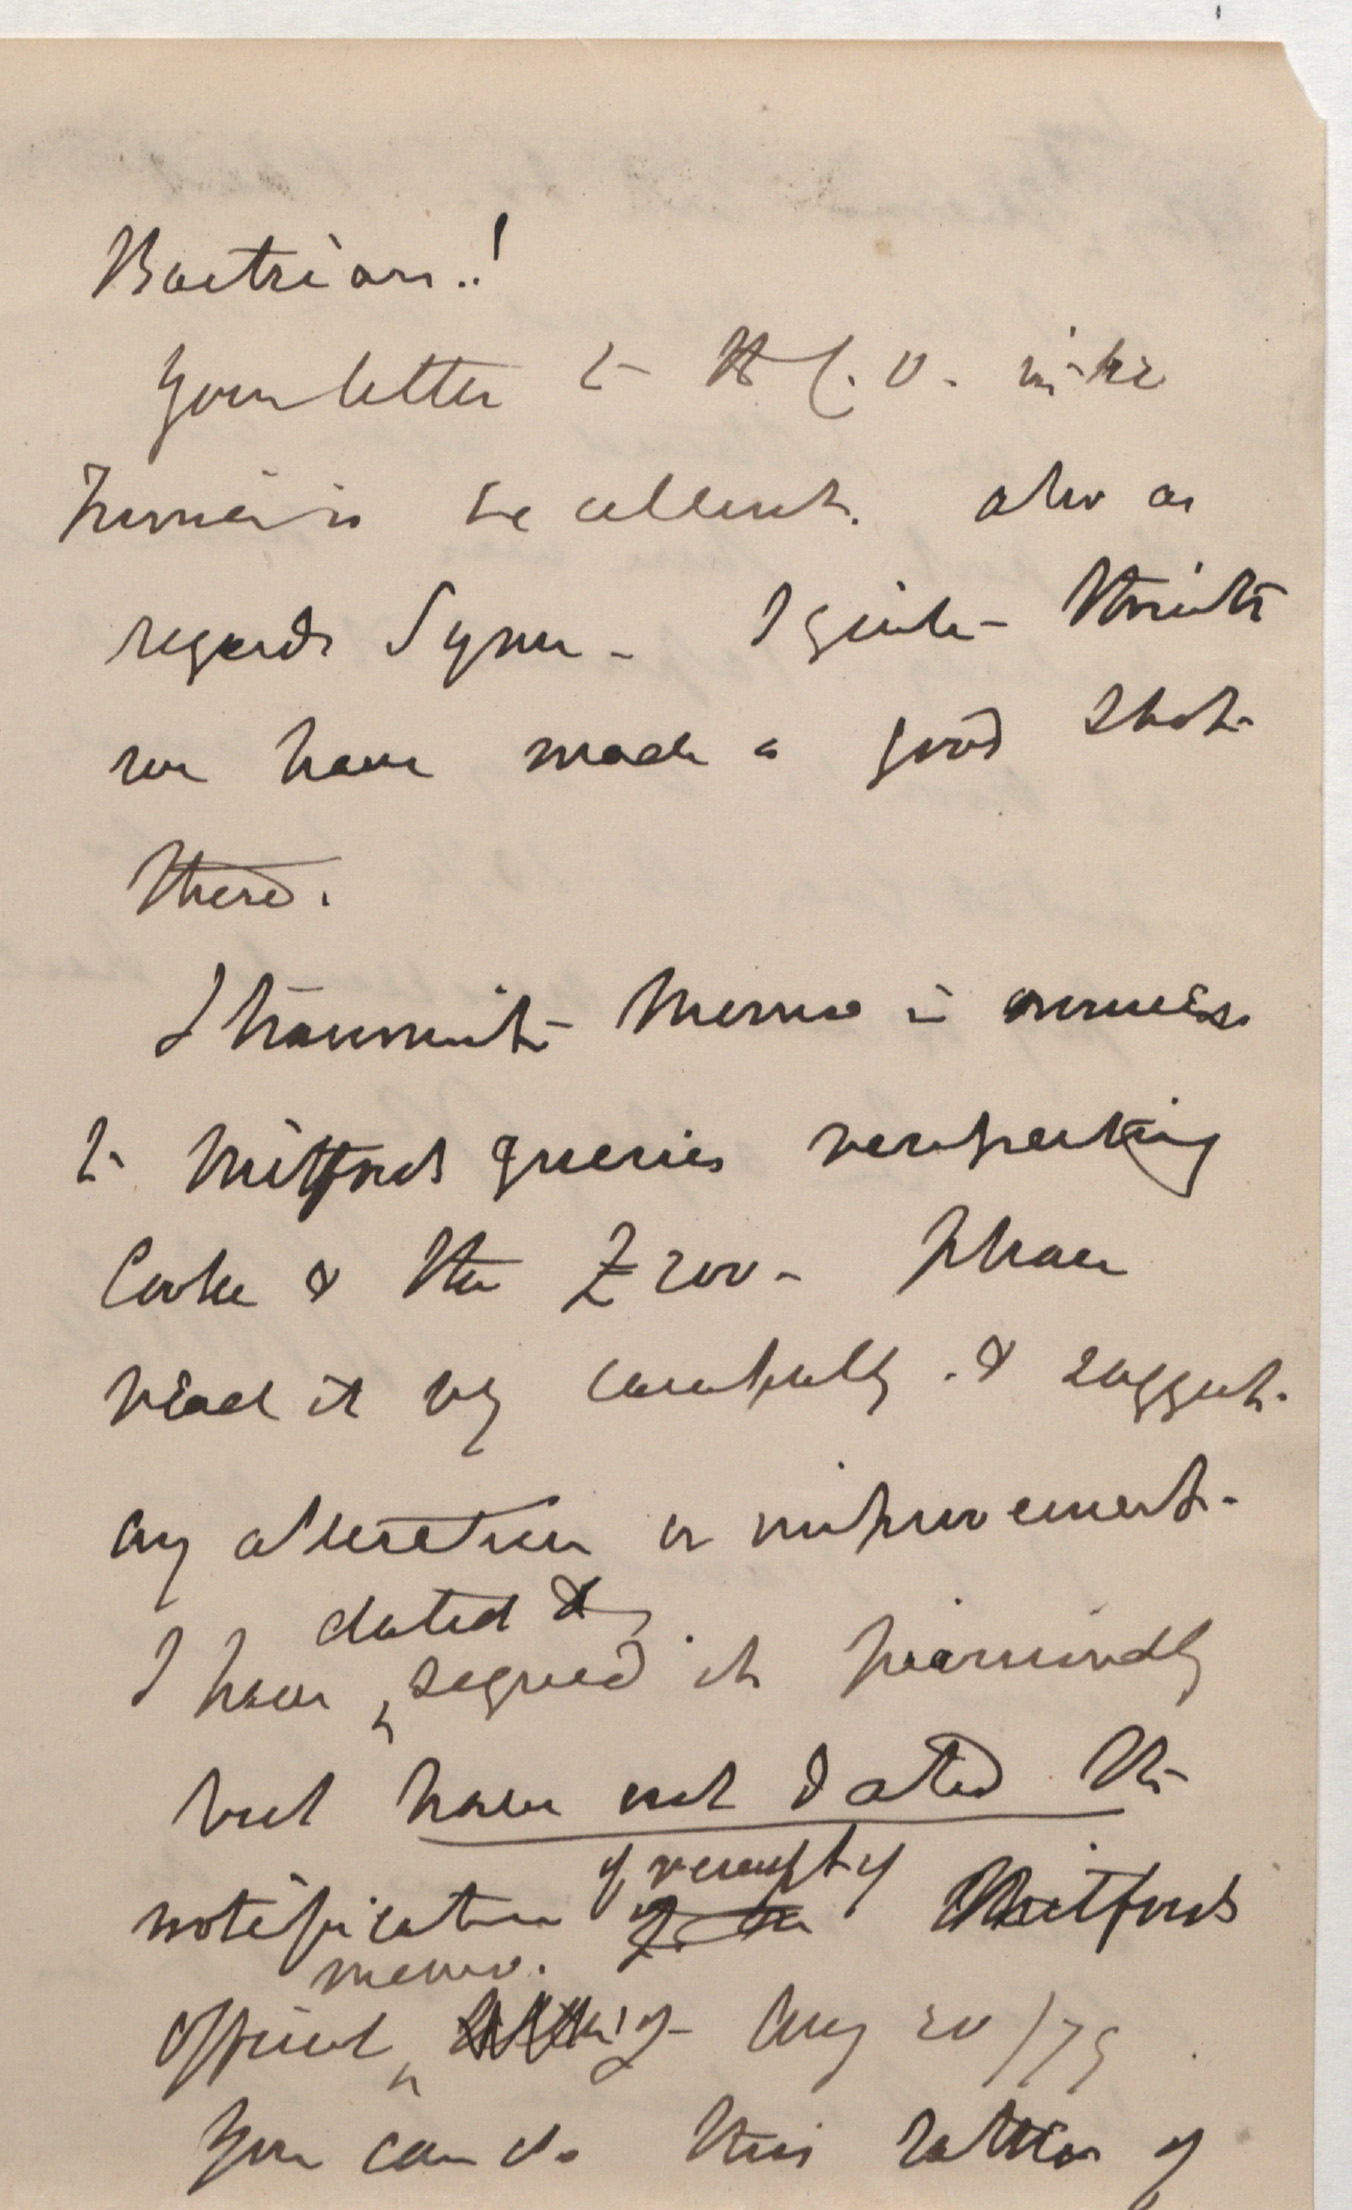 Bactrian..!
Your letter to H.C.V. in the
Times is excellent. also as
regards Synr - I quite think
we have made a good shot
there.
I transmit Memo in answer
to Mitfords queries respecting
Cooke & the £200 - please
read it vy carefully . & suggest
any alteration or improvement -
dated &
I have signed it provisionally
but have not dated the
of receipt of
notification of the Mitfords
memo.
official of Aug 20/79
You can do this rather of